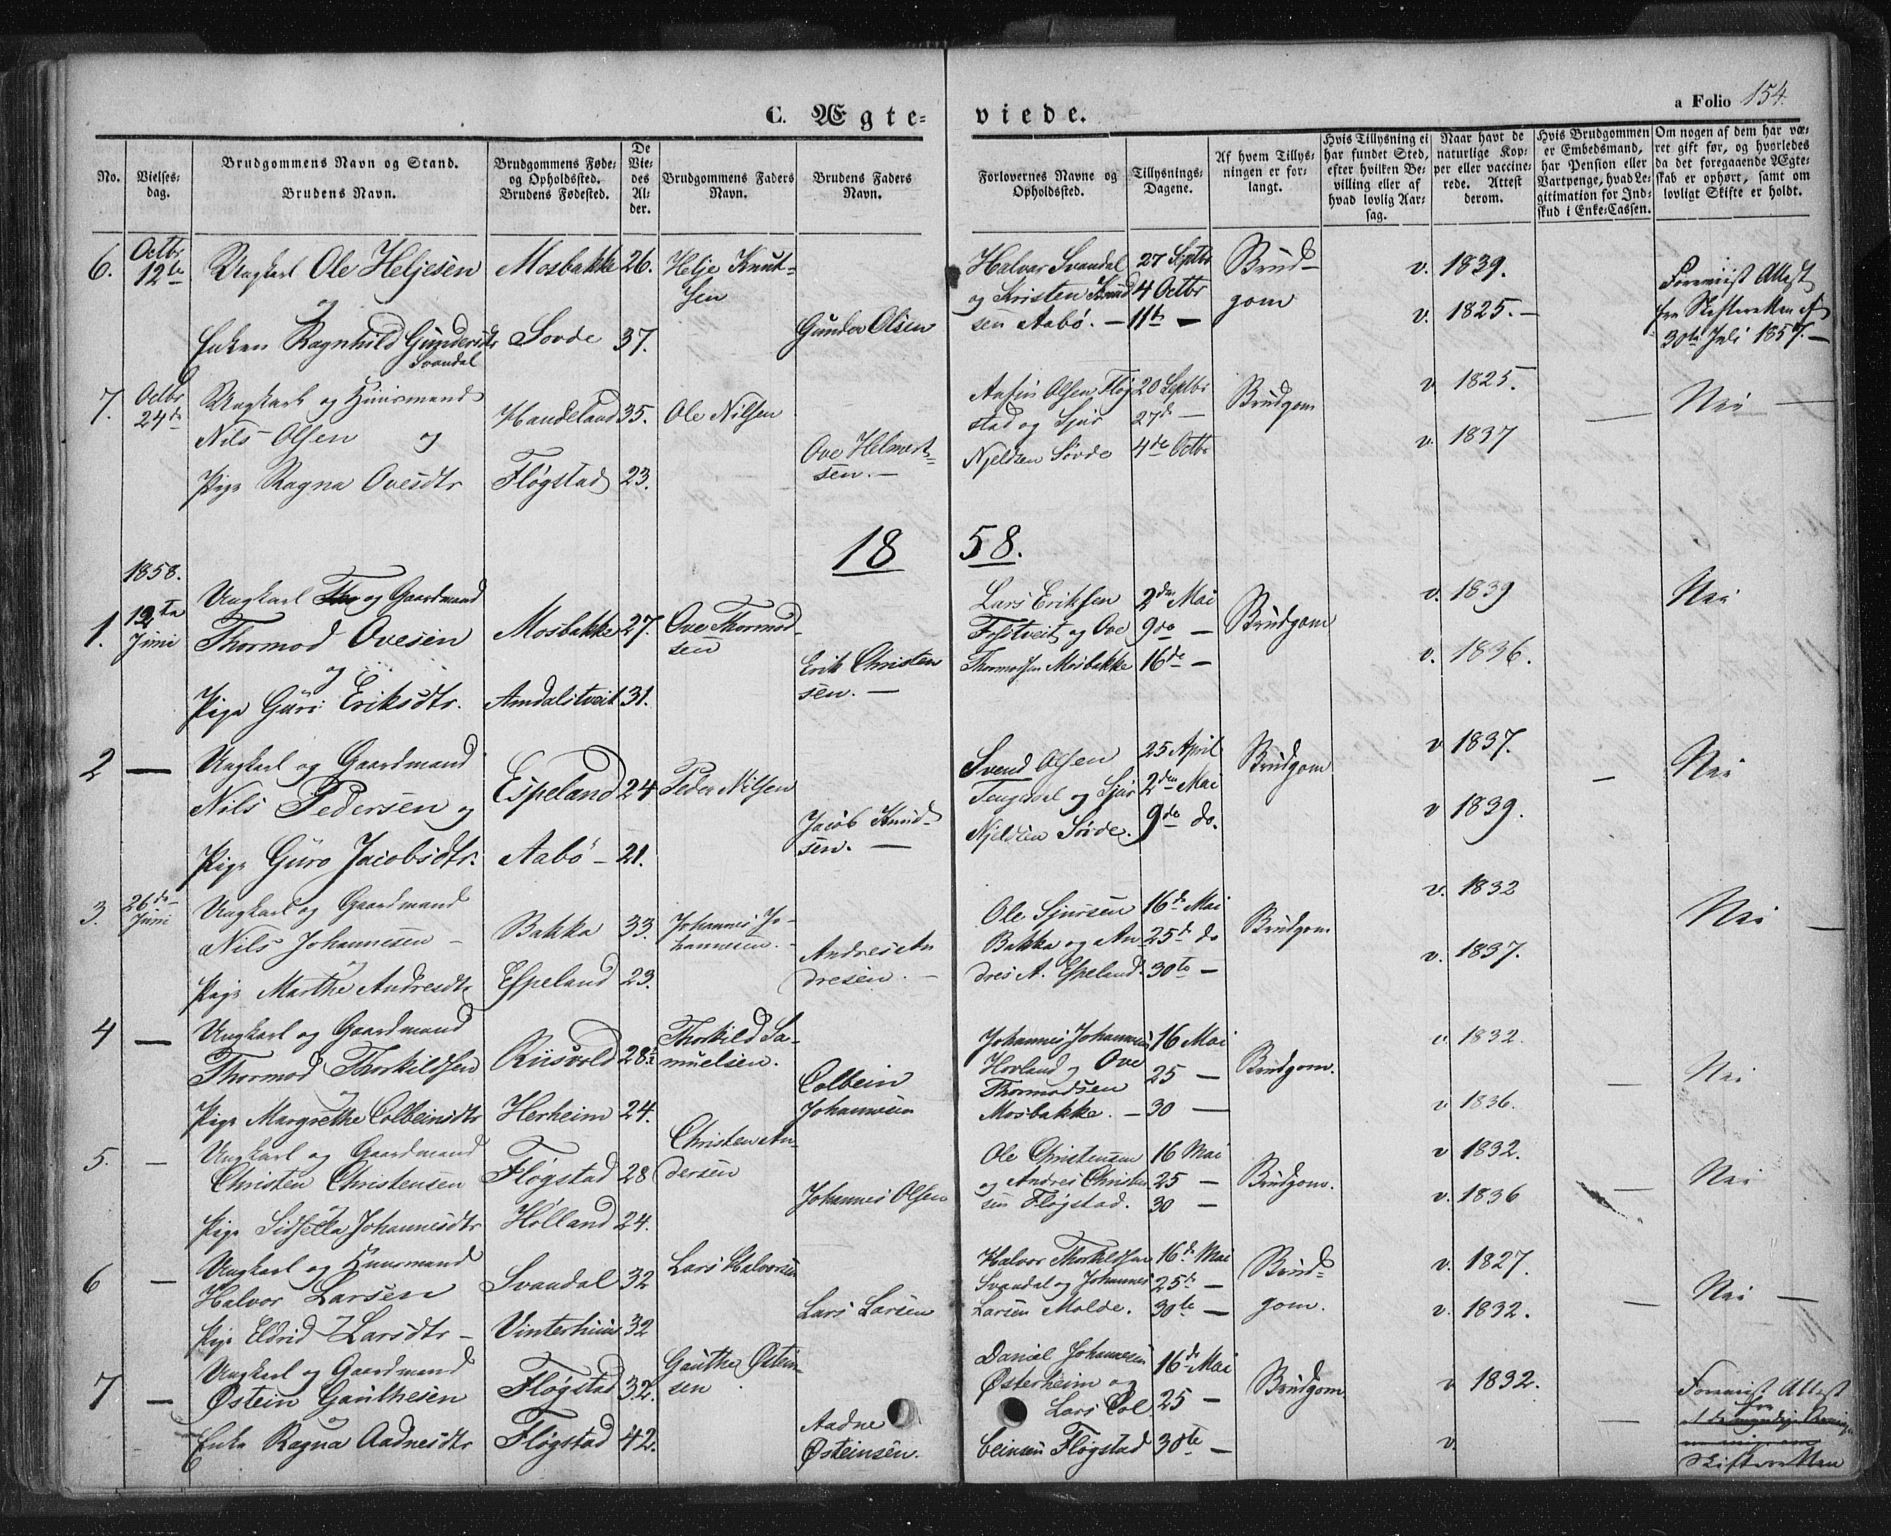 C. Ægte-
viede.
a Folio 154.
No.
Vielses-
dag.
Brudgommens Navn og Stand.
Brudens Navn.
Brudgommens Føde-
og Opholdssted.
Brudens Fødested.
De
Vie-
des
Al-
der.
Brudgommens Faders
Navn.
Brudens Faders
Navn.
Forlovernes Navne og
Opholdssted.
Tillysnings-
Dagene.
Af hvem Tillys-
ningen er for-
langt.
Hvis Tillysning ei
har fundet Sted,
efter hvilken Be-
villing eller af
hvad lovlig Aar-
sag.
Naar havt de
naturlige Kop-
per eller vaccine-
rede. Attest
derom.
Hvis Brudgommen
er Embedsmand,
har Pension eller
Vartpenge, hvad Le-
gitimation for Ind-
skud i Enke-Cassen.
Om nogen af dem har væ-
ret gift før, og hvorledes
da det foregaaende Ægte-
skab er ophørt, samt om
lovligt Skifte er holdt.
6.
Octbr
12te
Ungkarl Ole Heljesen
og
Enken Ragnhild Gundersdtr
Svandal
Mosbakke 26.
Sovde 37.
Helje Knut-
sen
Gunder Olsen
Halvor Svandal
og Kristen Knud
sen Aabö. —
27 Septbr
4 Octbr
11te —
Brud-
gom
v. 1839.
v. 1825. —
Foreviist Attest
fra Skifteretten af
30te Juli 1857. —
7.
Octbr
24de
Ungkarl og Huusmand
Nils Olsen og
Pige Ragna Ovesdtr
Handeland 35.
Fløgstad 23.
Ole Nilsen
Ove Helmert-
sen. —
Olsen Fløg
stad og Sjur
Njeldsen Sövde
20 Septbr
27de —
4de Octbr
Brudgom
v 1825.
v. 1837
— Nei —
18 58.
1858.
1.
12te
Juni
Ungkarl og Gaardmand
Thormod Ovesen
og
Pige Guri Eriksdtr.
Mosbakke 27.
Amdalstveit 31.
Ove Thormod-
sen
Erik Christen
sen. —
Lars Eriksen
og Ove
Thormodsen Mosbakke
2den Mai
9de —
16de —
Brudgom
v. 1839
v. 1836.
Nei
2 —
Ungkarl og Gaardmand
Nils Pedersen og
Pige Guro Jacobsdtr.
Espeland 24
Aabö — 21.
Peder Nilsen
Jacob Knud-
sen. —
Svend Olsen
Tengesdal og Sjur
Njeldsen Sövde.
25 April
2den Mai
9de do.
Brudgom
v 1837.
v 1839.
— Nei
3.
26de
Juni
Ungkarl og Gaardmand
Nils Johannesen —
og
Pige Marthe Andresdtr
Bakka 33.
Espeland 23.
Johannes Jo-
hannesen. -
Andres An
dresen. —
Ole Sjursen
Bakka og An
dres A. Espeland.
16de Mai
25de do
30te —
Brudgom
v. 1832
v. 1837.
Nei —
4 —
Ungkarl og Gaardmand
Thormod Thorkildsen
og
Pige Margrethe Colbeinsdtr
Riisvold 28½
Herheim 24.
Thorkild Sa-
muelsen.
Colbein
Johannesen
Johannes Johannesen
Hovland og Ove
Thormodsen
Mosbakke. —
16 Mai
25 —
30 —
Brudgom.
v 1832.
v 1836.
— Nei
5. —
Ungkarl og Gaardmand
Christen Christensen
og
Pige Sidsella Johannesdtr
Fløgstad 28
Hölland 24.
Christen An-
dersen
Johannes Olsen
Ole Christensen
og Andres Christen
sen Fløgstad.
16 Mai
25 —
30 —
Brudgom.
v 1832.
v. 1836
— Nei
6 —
Ungkarl og Huusmand
Halvor Larsen
Pige Eldrid Larsdtr —
Svandal 32
Vinterhuus 32
Lars Halvorsen
Lars Larsen
Halvor Thorkildsen
Svandal og Johannes
Larsen Molde.
16de Mai
25de —
30te —
Brud-
gom.
v. 1827.
v. 1832.
— Nei —
7 —
Ungkarl og Gaardmand
Østein Gauthesen
og
Enke Ragna Aadnesdtr
Fløgstad 32.
Fløgstad 42.
Gauthe Østein-
sen
Aadne
Østeinsen.
Daniel Johannesen
Østerheim og
Lars Col
beinsen Fløgstad
16de Mai
25 —
30te —
Brudgom
v 1832.
v.
—
Foreviist Attest
fra
Skifteretten